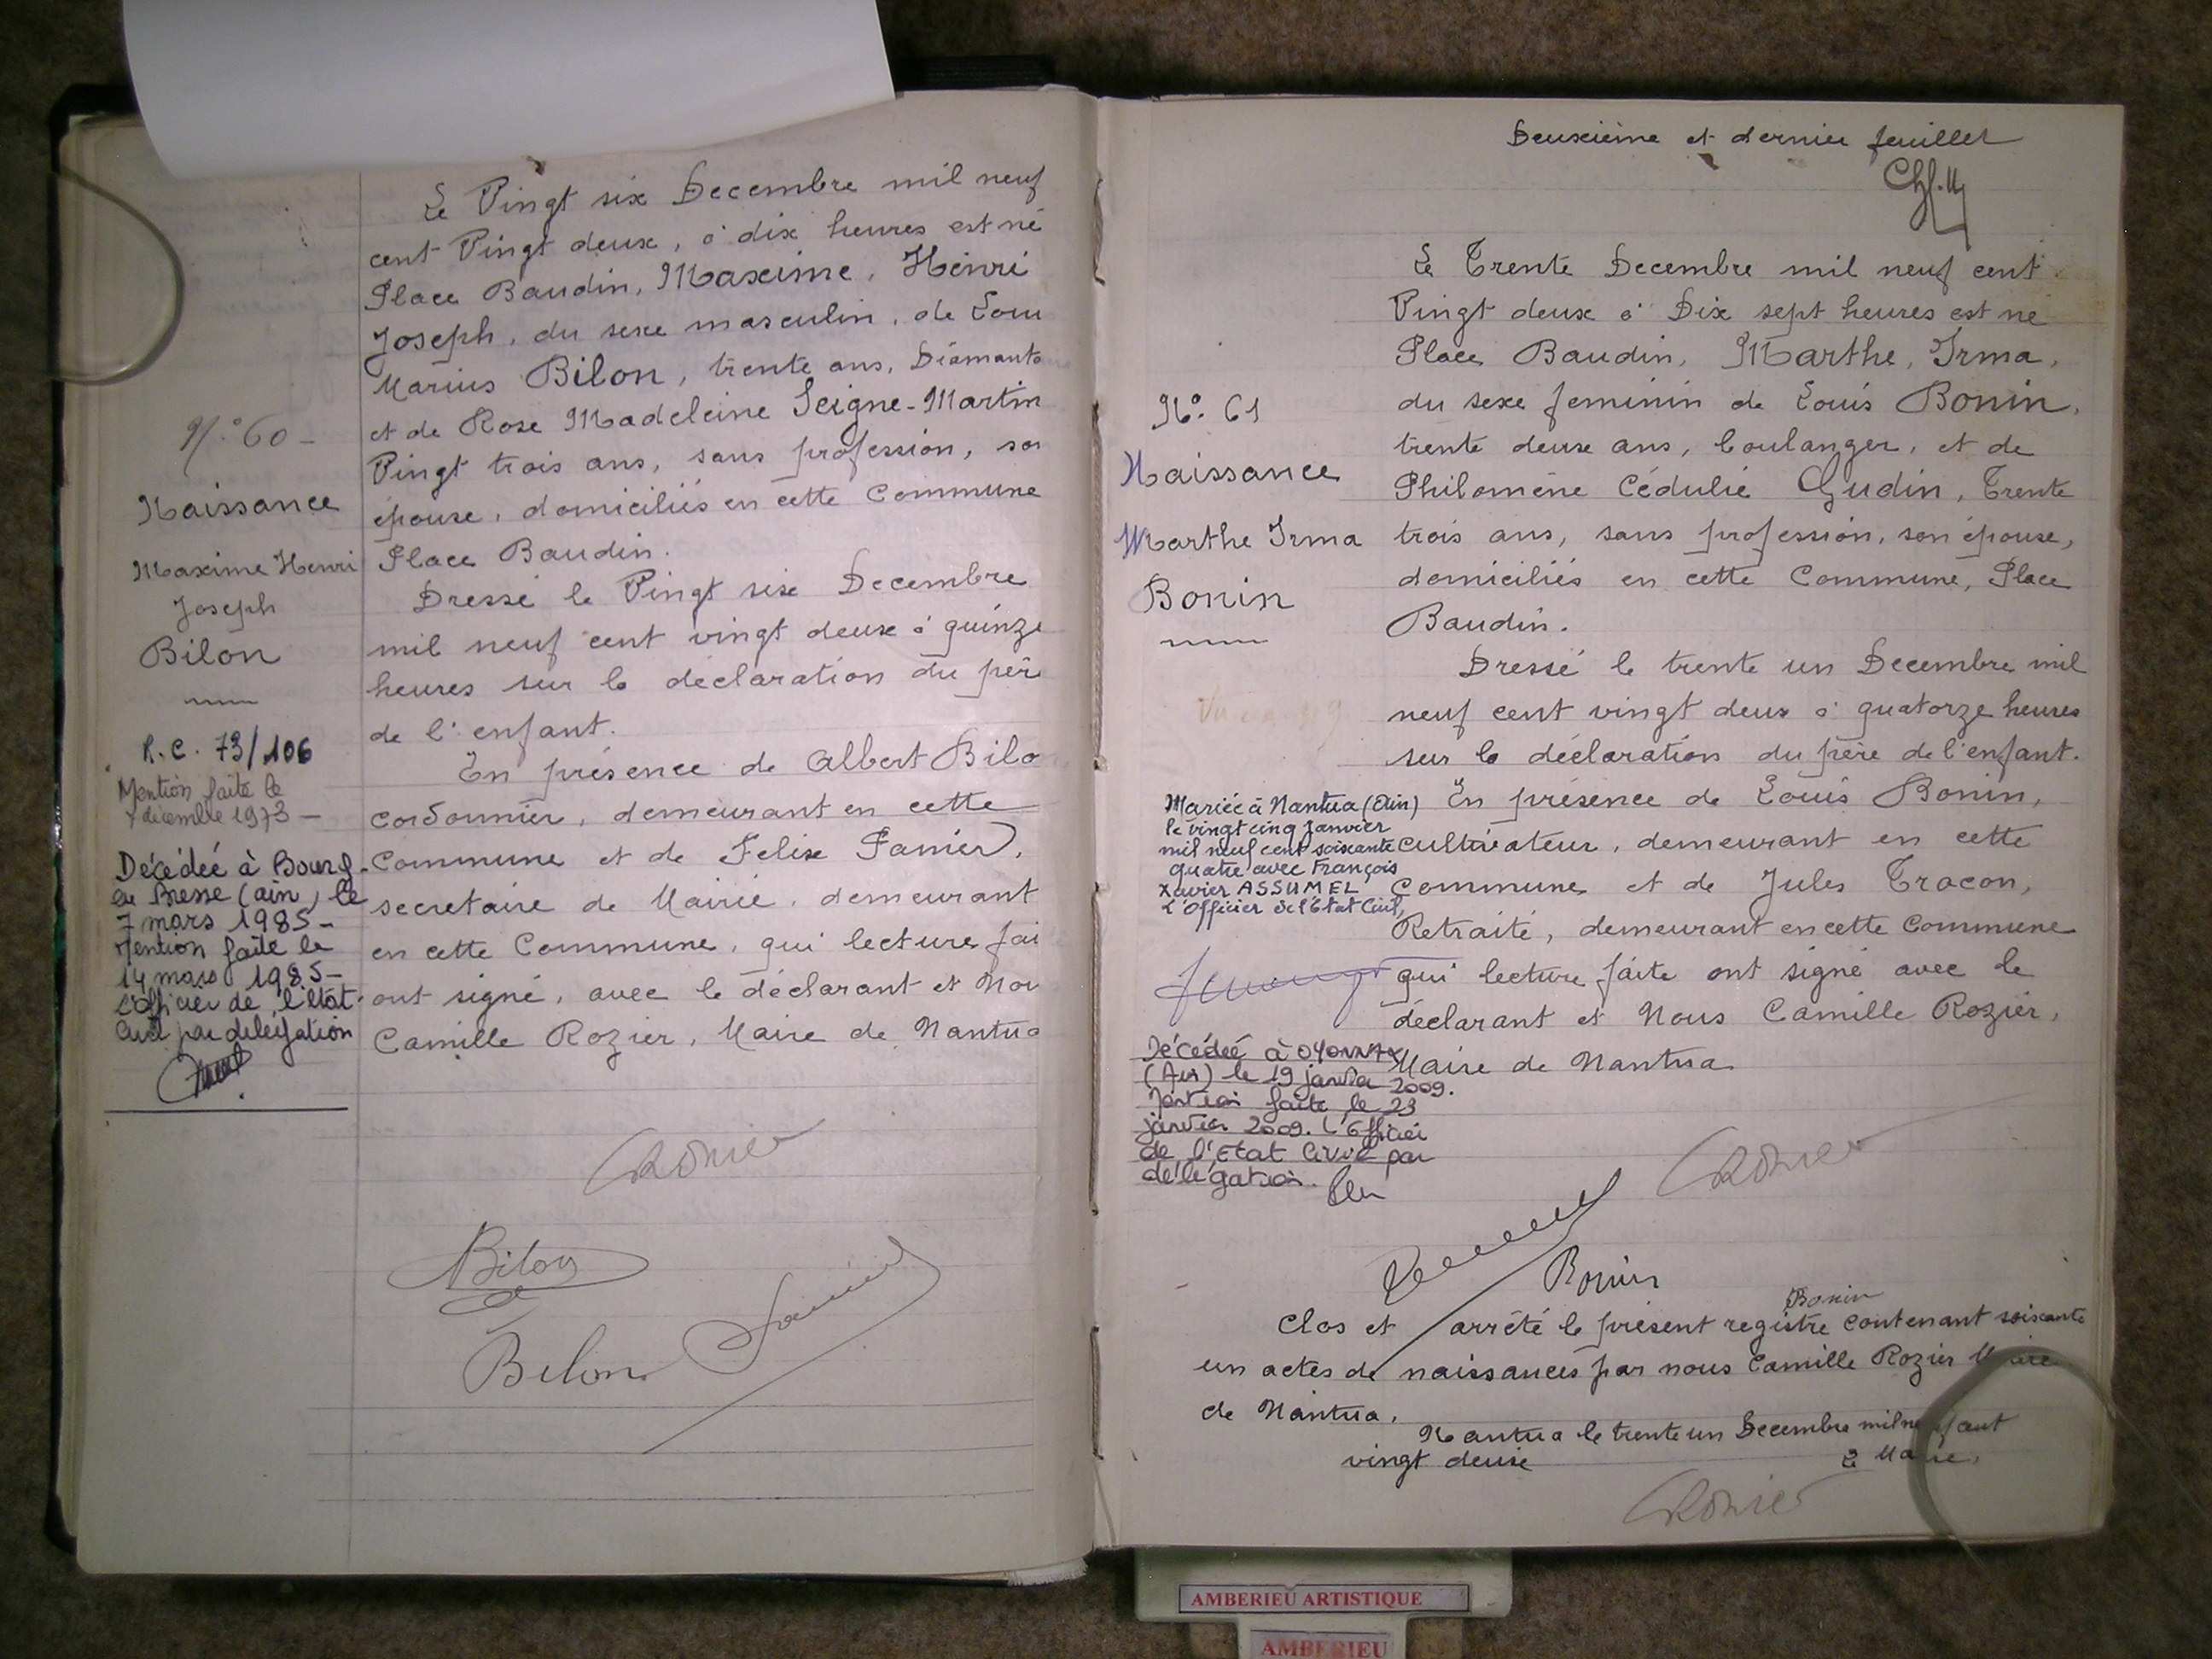 N° 60 -
Naissance
Maxime Henri
Joseph
Bilon
R.C. 73/106
Mention faite le
décembre 1973 -
Décédée à Bourg-
en Bresse (ain) le
7 mars 1985 -
Mention faite le
14 mars 1985 -
L'Officier de l'état-
Civil par délégation
Le Vingt six Decembre mil neuf
cent Vingt deux, à dix heures est né
Place Baudin, Maxime, Henri
Joseph, du sexe masculin, de Loui
Marius Bilon, trente ans, Diamanta
et de Rose Madeleine Seigne-Martin
Vingt trois ans, sans profession, son
épouse, domiciliés en cette Commune
Place Baudin.
Dressé le Vingt six Decembre
mil neuf cent vingt deux à quinze
heures sur la déclaration du père
de l'enfant.
En présence de Albert Bilo
cordonnier, demeurant en cette
Commune et de Felix Panier,
secretaire de Mairie, demeurant
en cette Commune, qui lecture fai
ont signé, avec le déclarant et Nou
Camille Rozier, Maire de Nantua
CRozier
Bilon
Bilon
Deuxième et dernier feuillet
N° 61
Naissance
Marthe Irma
Bonin
Mariée à Nantua (Ain)
le vingt cinq Janvier
mil neuf cent soixante
quatre avec François
Xavier ASSUMEL
L'Officier de l'Etat Civil,
Décédée à OYONNAX
(Ain) le 19 janvier 2009.
Mention faite le 23
janvier 2009. L'Officier
de l'Etat Civil par
délégation.
Le Trente Decembre mil neuf cent
Vingt deux à Dix sept heures est né
Place Baudin, Marthe, Irma,
du sexe feminin de Louis Bonin,
trente deux ans, boulanger, et de
Philomène Cédulie Gudin, Trente
trois ans, sans profession, son épouse,
domiciliés en cette Commune, Place
Baudin.
Dressé le trente un Decembre mil
neuf cent vingt deux à quatorze heures
sur la déclaration du père de l'enfant.
En présence de Louis Bonin,
cultivateur, demeurant en cette
Commune et de Jules Tracon,
Retraité, demeurant en cette Commune
qui lecture faite ont signé avec le
déclarant et Nous Camille Rozier,
Maire de Nantua
CRozier
Bonin
Bonin
Clos et arrêté le présent registre contenant soixante
un actes de naissances par nous Camille Rozier Maire
de Nantua.
Nantua le trente un Decembre mil neuf cent
vingt deux
Le Maire,
CRozier
AMBERIEU ARTISTIQUE
AMBERIEU